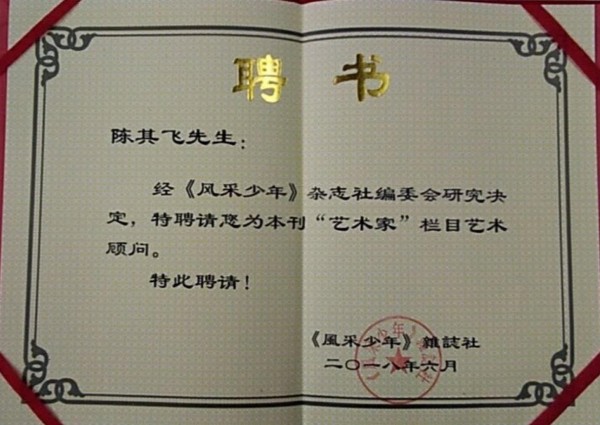 聘书
陈其飞先生:
经《风采少年》杂志社编委会研究决
定,特聘请您为本刊“艺术家”栏目艺术
顾问。
特此聘请!
《風采少年》雜誌社
二〇一八年六月